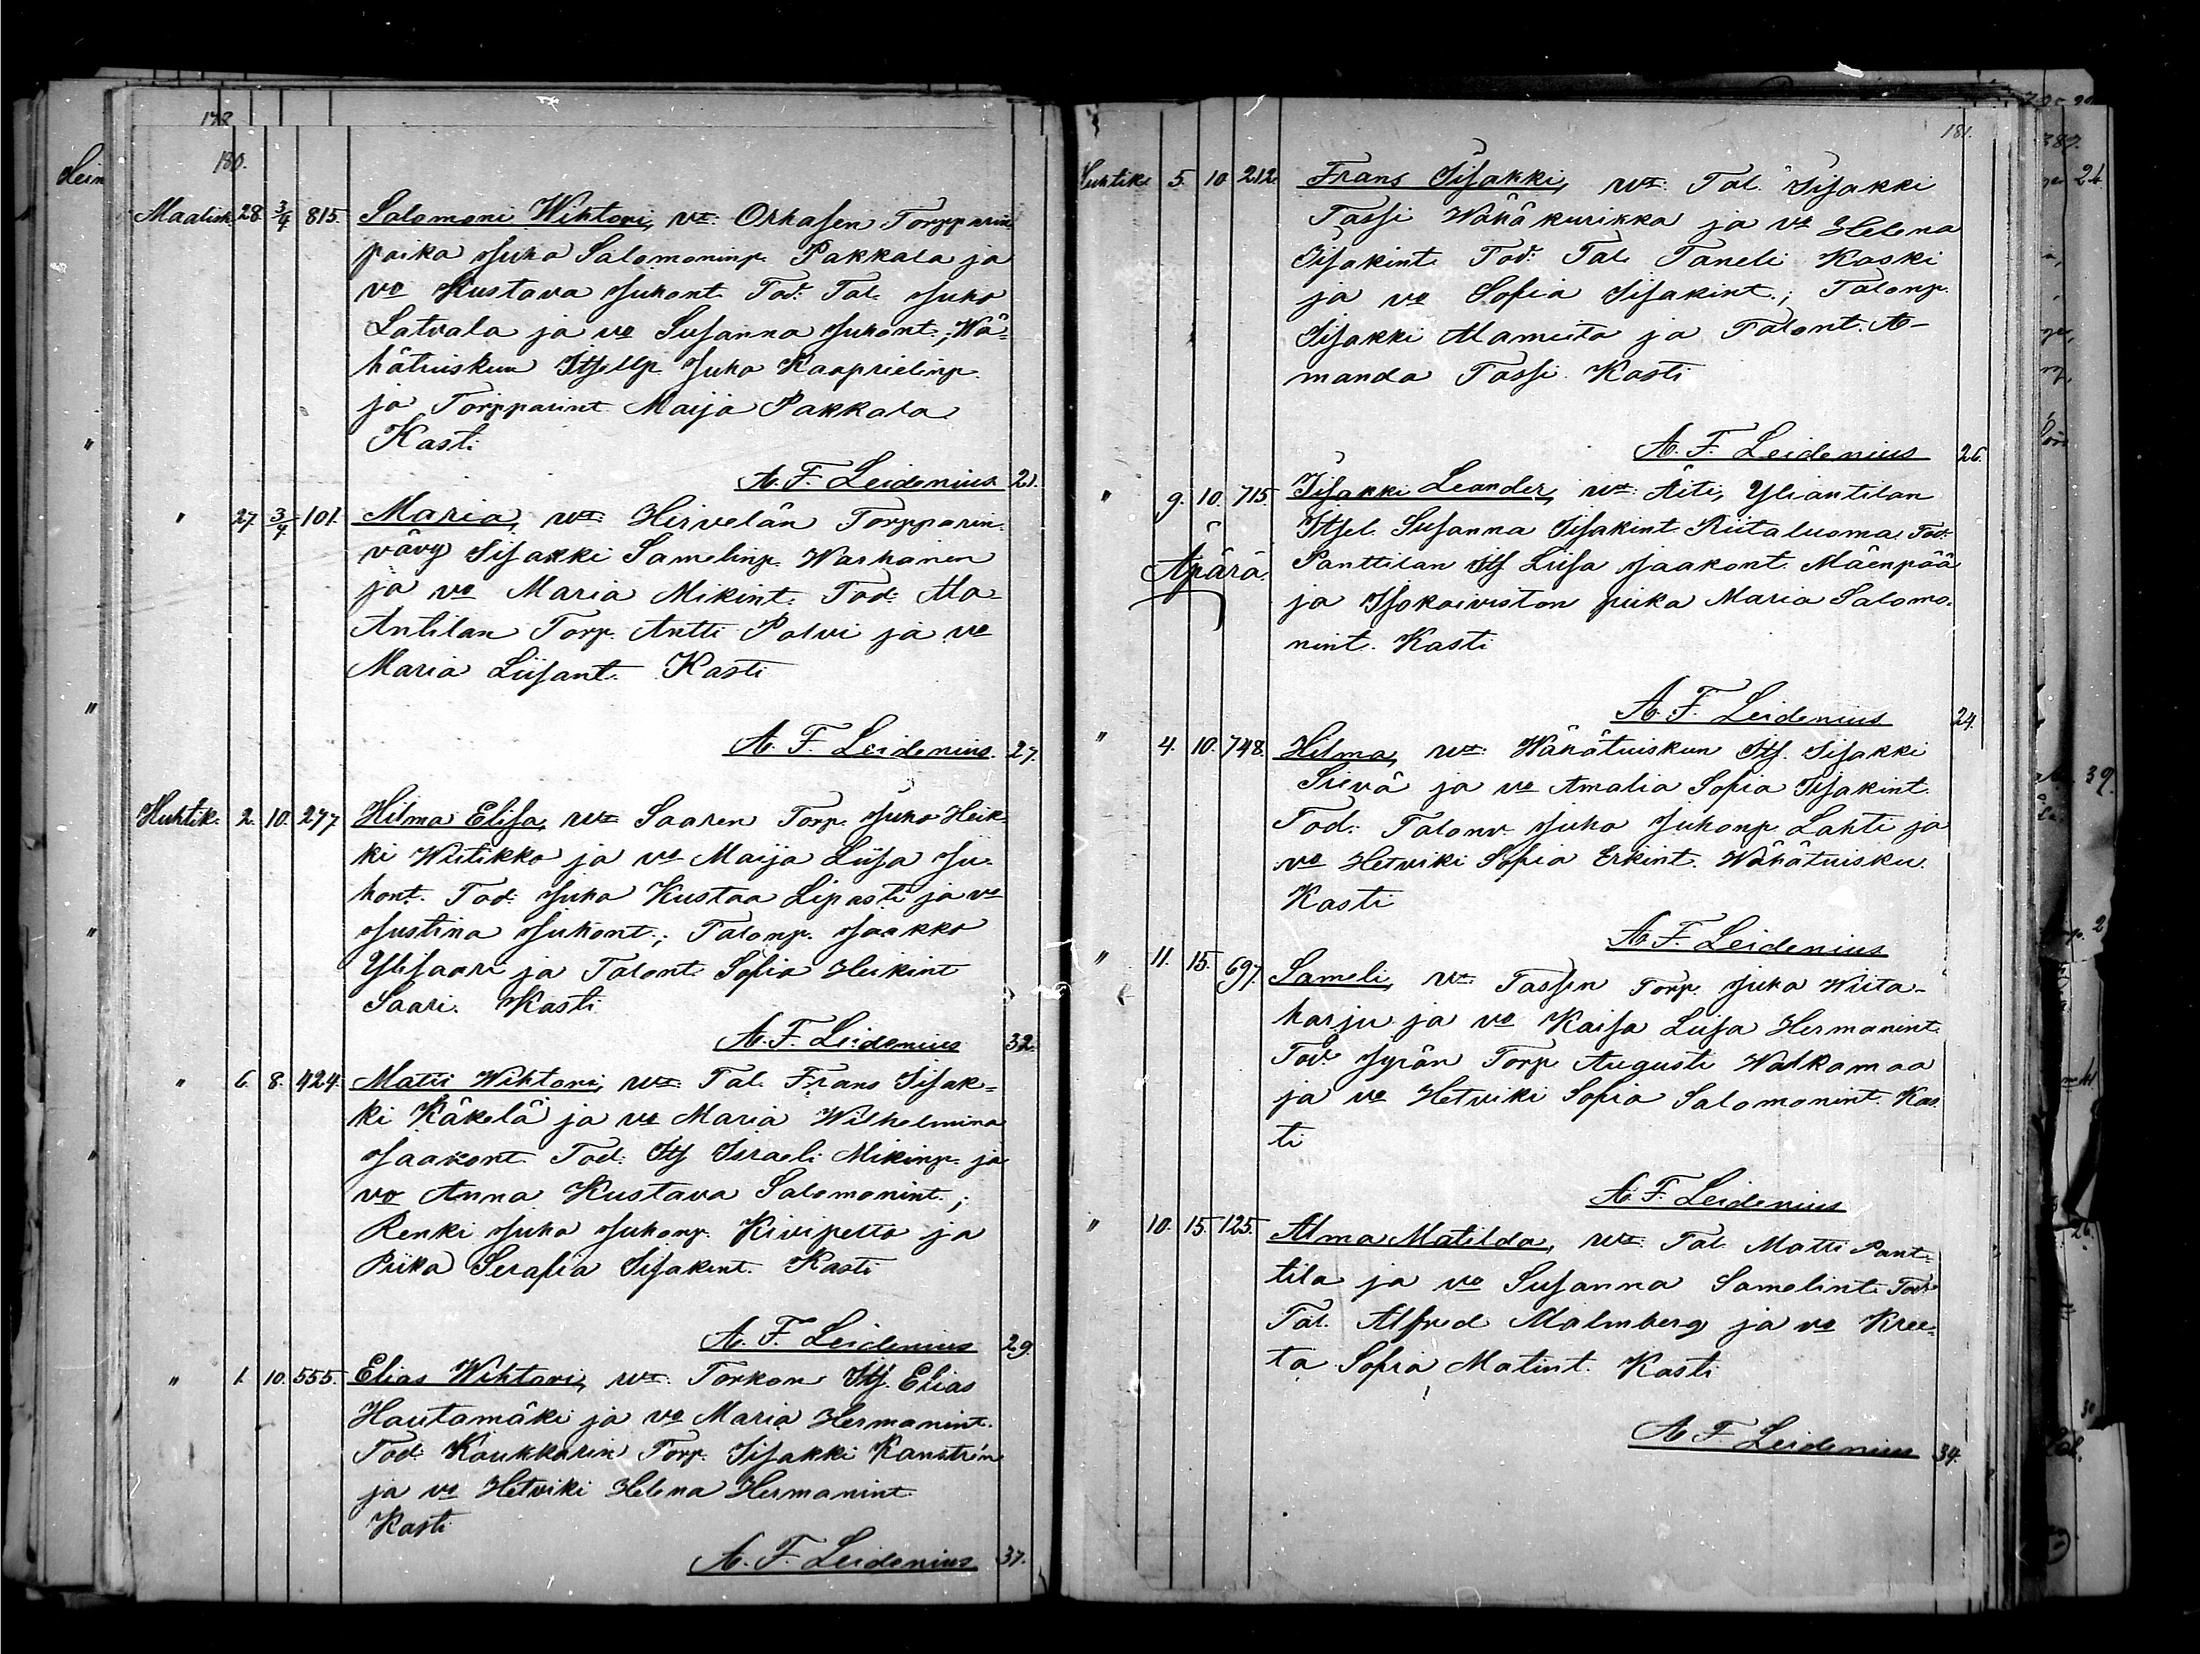 178
180.
Maalisk. 28. 3/4 815. Salomoni Wihtori, vt: Orhasen Torpparin
poika Juho Salomoninp. Pakkala ja
vo Kustava Juhont. Tod: Tal. Juho
Latvala ja vo Susanna Juhont.; Wä-
hätuiskun Itsellp. Juho Kaaprielinp.
ja Torpparint. Maija Pakkala
Kasti
A. F. Leidenius 21.
" 27. 3/4 101. Maria, vt: Hirvelän Torpparin
vävy Iisakki Samelinp. Warhanen
ja vo Maria Mikint. Tod: Ala-
Antilan Torp. Antti Palvi ja vo
Maria Liisant. Kasti
A. F. Leidenius. 27.
Huhtik. 2. 10. 277. Hilma Elisa, vt: Saaren Torp. Juho Heik-
ki Wiitikko ja vo Maija Liisa Ju-
hont. Tod: Juho Kustaa Lipasti ja vo
Justina Juhont.; Talonp. Jaakko
Ylisaari ja Talont. Sofia Heikint
Saari. Kasti
A. F. Leidenius 32.
" 6. 8. 424. Matti Wihtori, vt: Tal. Frans Iisak-
ki Käkelä ja vo Maria Wilhelmina
Jaakont. Tod: Its Israeli Mikinp. ja
vo Anna Kustava Salomonint.;
Renki Juho Juhonp. Kivipelto ja
Piika Serafia Iisakint. Kasti
A. F. Leidenius 29.
" 1. 10. 555. Elias Wihtori, vt: Torkon Its. Elias
Hautamäki ja vo Maria Hermanint.
Tod: Kaukkarin Torp. Iisakki Kanstrén
ja vo Hetviki Helena Hermanint.
Kasti
A. F. Leidenius 37.
181.
Huhtik. 5. 10. 212. Frans Iisakki, vt: Tal. Iisakki
Tassi Wähäkurikka ja vo Helena
Iisakint. Tod: Tal. Taneli Koski
ja vo Sofia Iisakint.; Talonp.
Iisakki Alamiita ja Talont. A-
manda Tassi. Kasti
A. F. Leidenius 26.
" 9. 10. 715. Iisakki Leander, vt: Äiti, Yliantilan
Itsel. Susanna Iisakint. Riitaluoma Tod:
Äpärä. Panttilan Its Liisa Jaakont. Mäenpää
ja Isokoiviston piika Maria Salomo-
nint. Kasti
A. F. Leidenius 24.
" 4. 10. 748. Hilma, vt: Wähätuiskun Its. Iisakki
Sievä ja vo Amalia Sofia Iisakint.
Tod: Talonv. Juho Juhonp. Lahti ja
vo Hetviki Sofia Erkint. Wähätuisku.
Kasti
A. F. Leidenius
" 11. 15. 697. Sameli, vt: Tassin Torp. Juho Wiita-
harju ja vo Kaisa Liisa Hermanint.
Tod: Jyrän Torp Augusti Walkamaa
ja vo Hetviki Sofia Salomonint. Kas
ti
A. F. Leidenius
" 10. 15. 125. Alma Matilda, vt: Tal. Matti Pant-
tila ja vo Susanna Samelint. Tod:
Tal. Alfred Malmberg ja vo Kree-
ta Sofia Matint. Kasti
A. F. Leidenius 34.